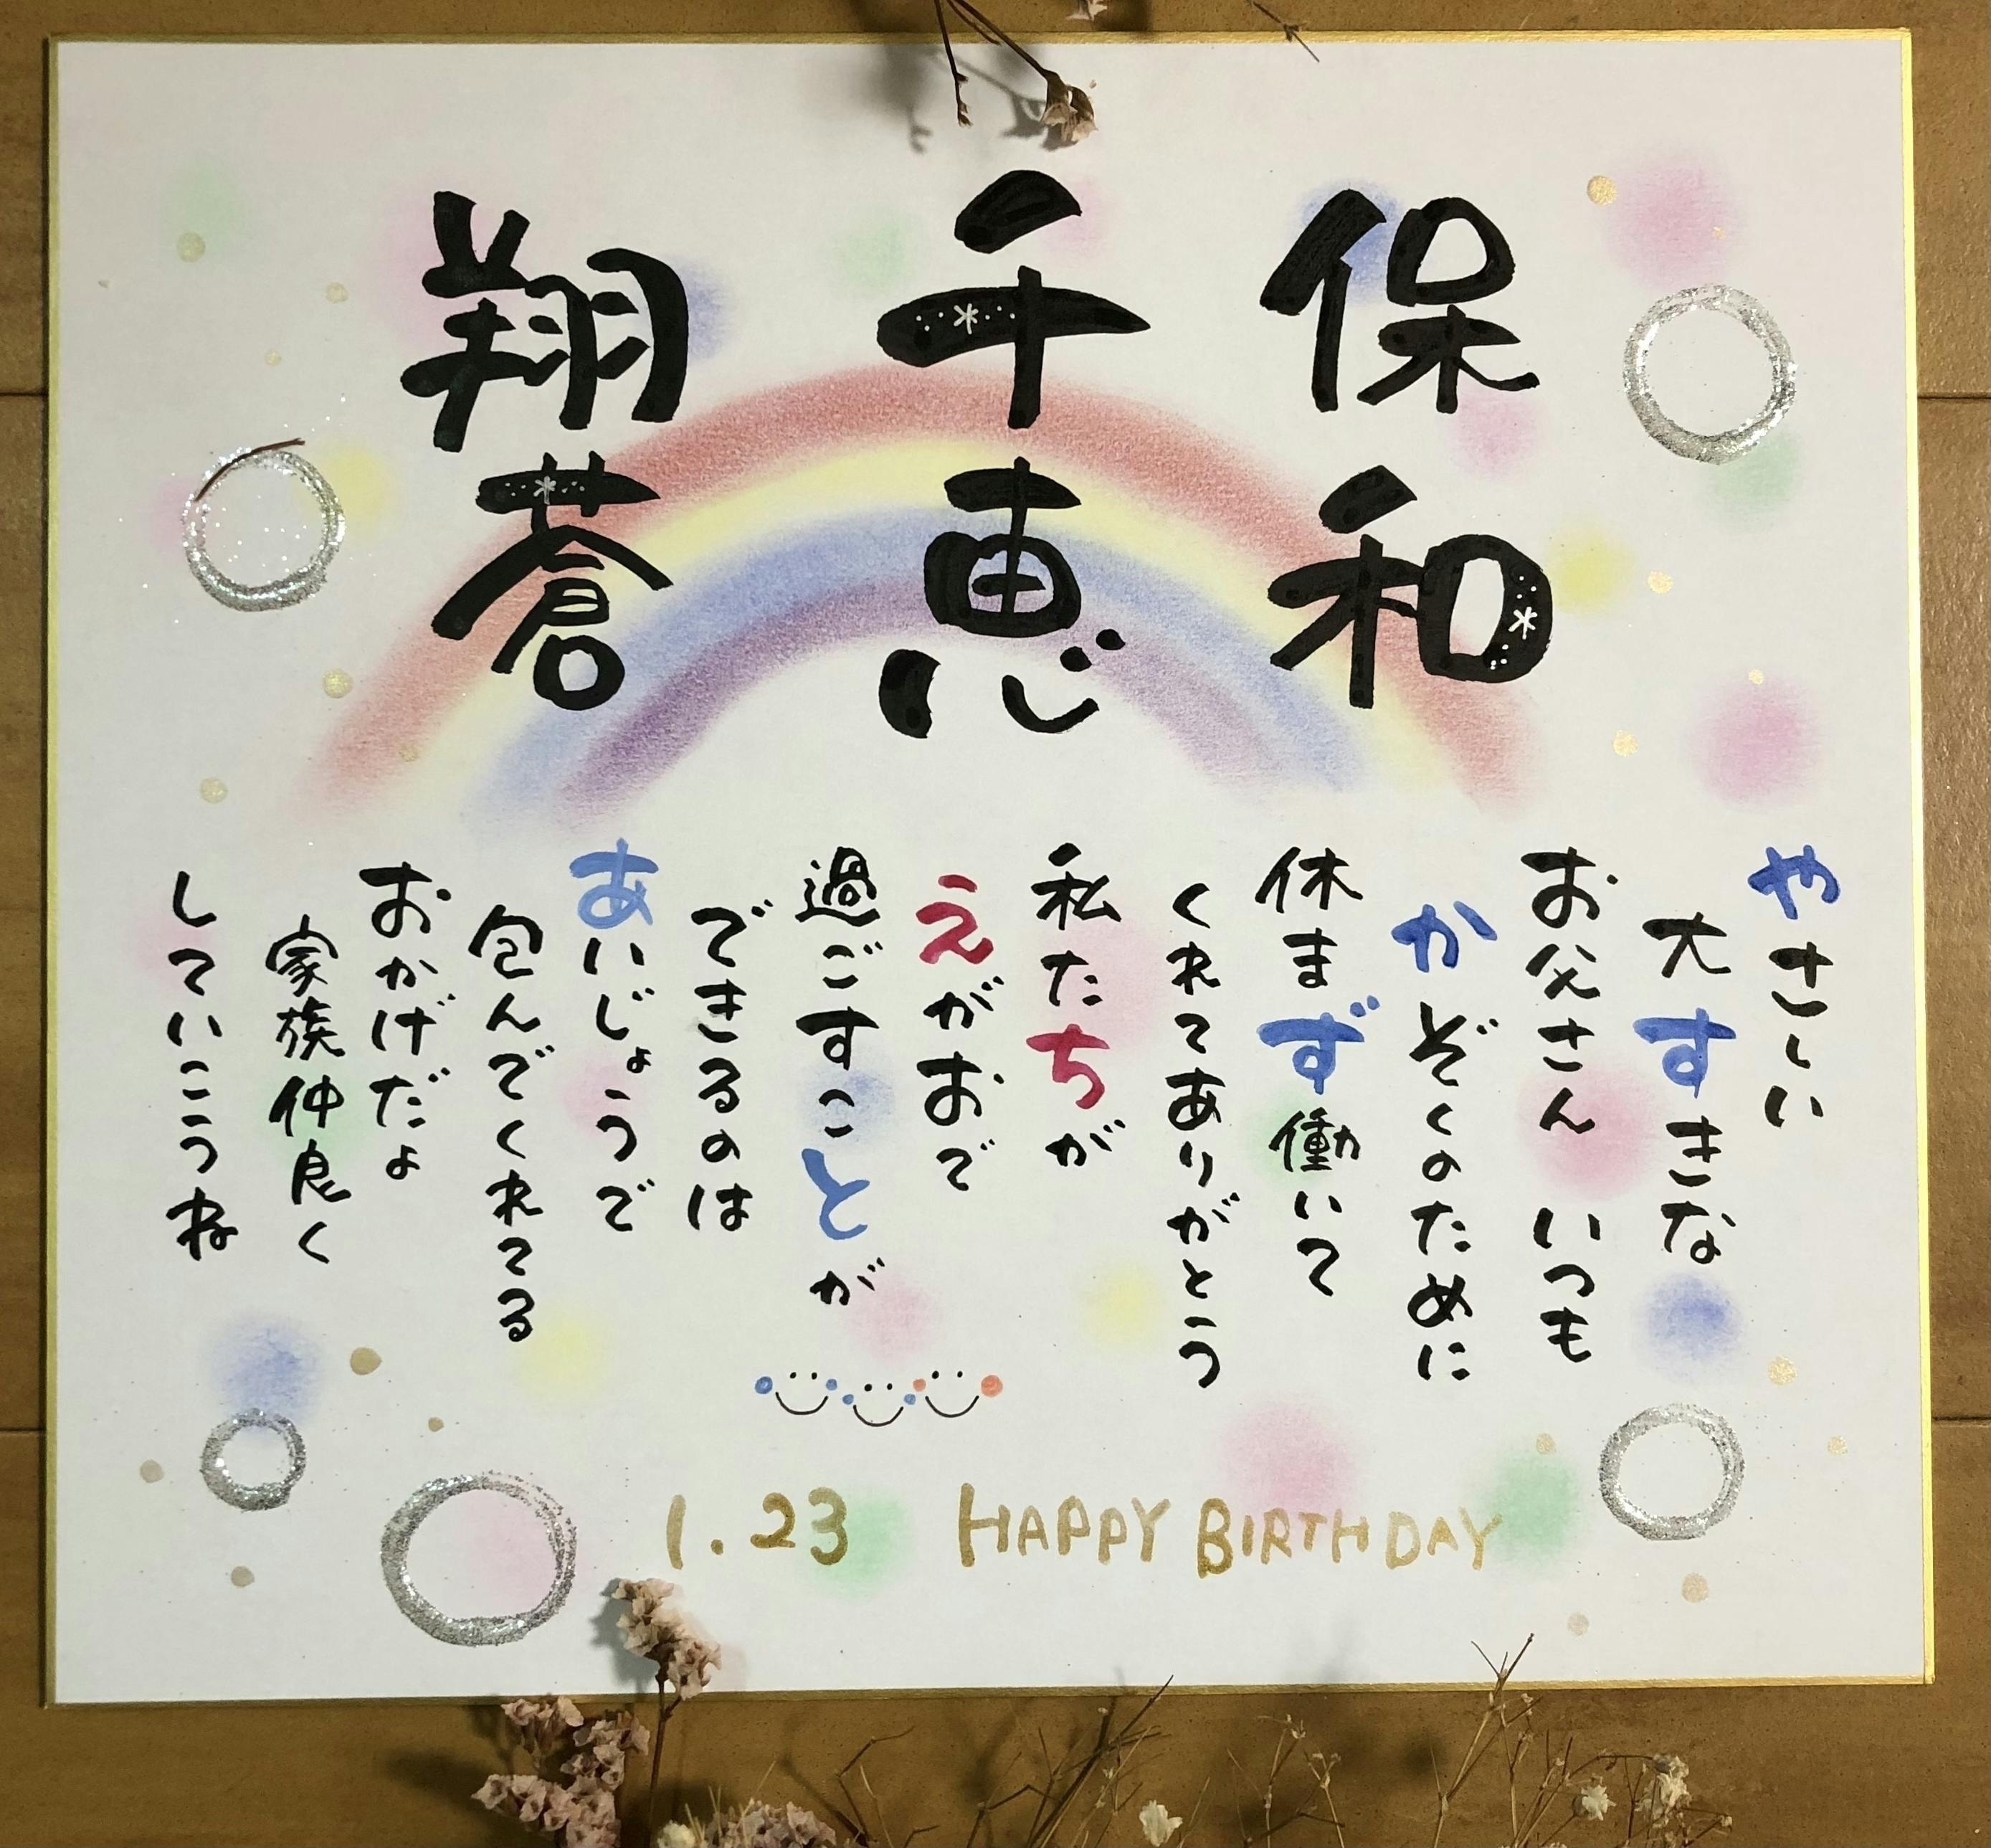 保和
千恵
翔蒼
やさしい
大すきな
お父さん いつも
かぞくのために
休まず働いて
くれてありがとう
私たちが
えがおで
過ごすことが
できるのは
あいじょうで
包んでくれてる
おかげだよ
家族仲良く
していこうね
1.23 HAPPY BIRTHDAY